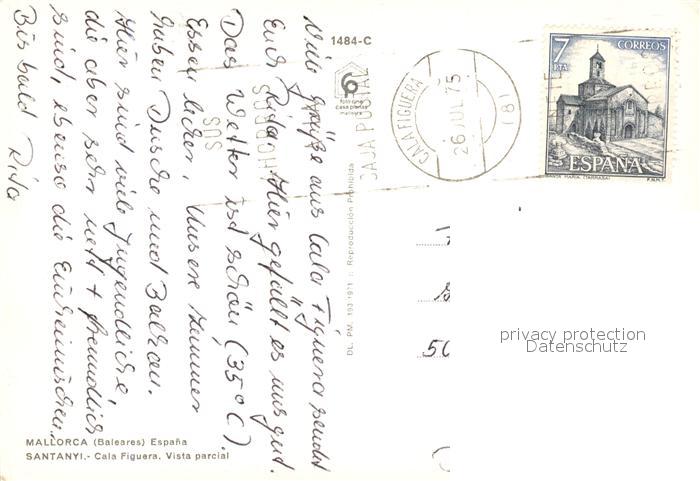 Viele Grüße aus Cala Figuera sendet
Euch Rita. Hier gefällt es uns gut.
Das Wetter ist schön (35°C).
Essen lecker. Unsere Zimmer
haben Dusche und Balkon.
Hier sind viele Jugendliche,
die aber sehr nett + freundlich
sind, ebenso die Einheimischen.
Bis bald Rita
1484-C
CAJA POSTAL
CALA FIGUERA
26 JUL 75
(81)
7
PTA
CORREOS
ESPAÑA
SANTA MARIA (TARRASA)
F.N.M.T.
DL. PM. 193-1971 :: Reproducción Prohibida
50
privacy protection
Datenschutz
MALLORCA (Baleares) España
SANTANYI.- Cala Figuera. Vista parcial